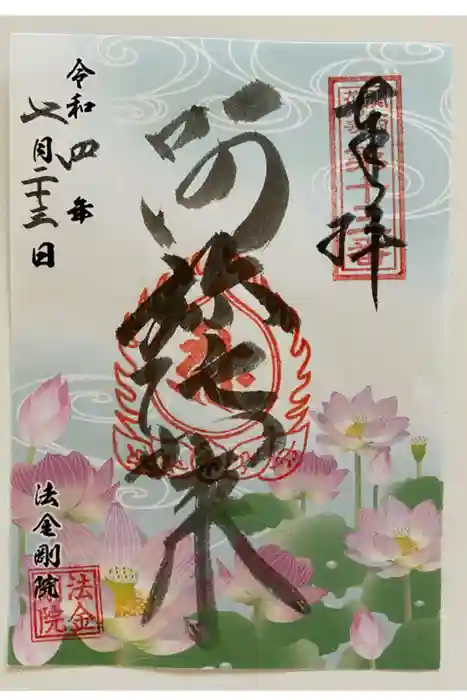 奉拝
第十三番
阿弥陀如来
令和四年
七月二十三日
法金剛院
法金
剛院